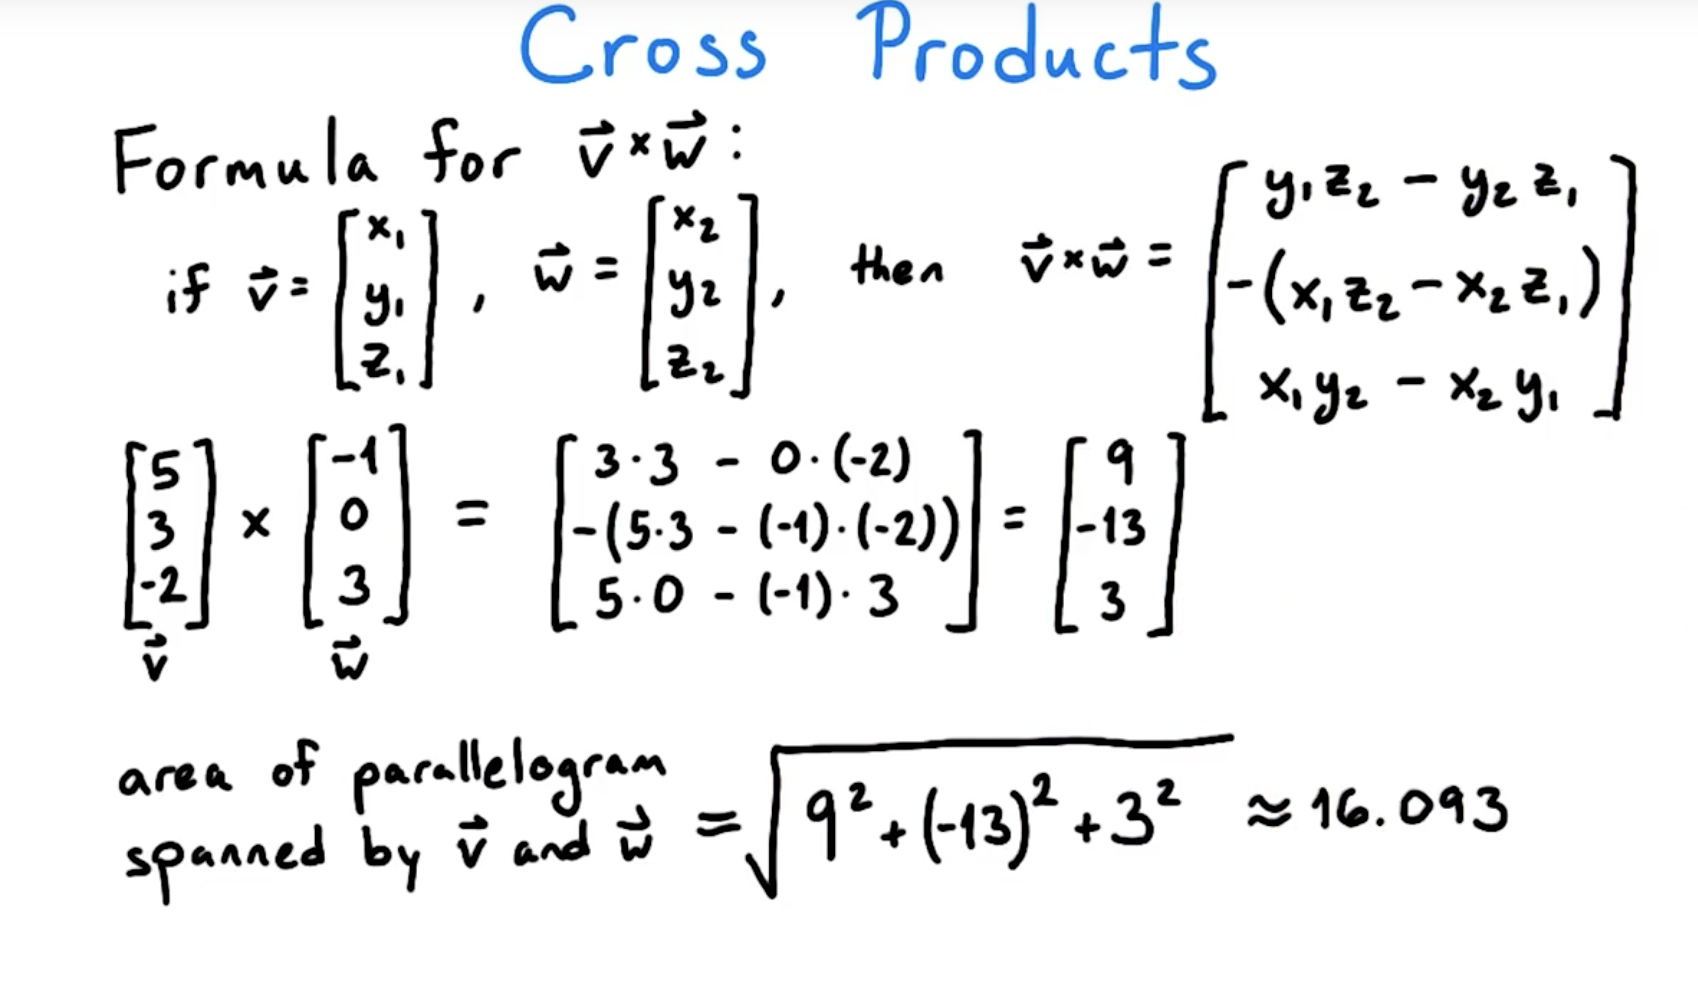 Cross Products
Formula for v⃗ × w⃗ :
if v⃗ = [x₁ y₁ z₁], w⃗ = [x₂ y₂ z₂], then v⃗ × w⃗ = [y₁z₂ − y₂z₁ −(x₁z₂ − x₂z₁) x₁y₂ − x₂y₁]
[5 3 -2] × [-1 0 3] = [3·3 - 0·(-2) -(5·3 - (-1)·(-2)) 5·0 - (-1)·3] = [9 -13 3]
v⃗ w⃗
area of parallelogram
spanned by v⃗ and w⃗ = √(9² + (-13)² + 3²) ≈ 16.093